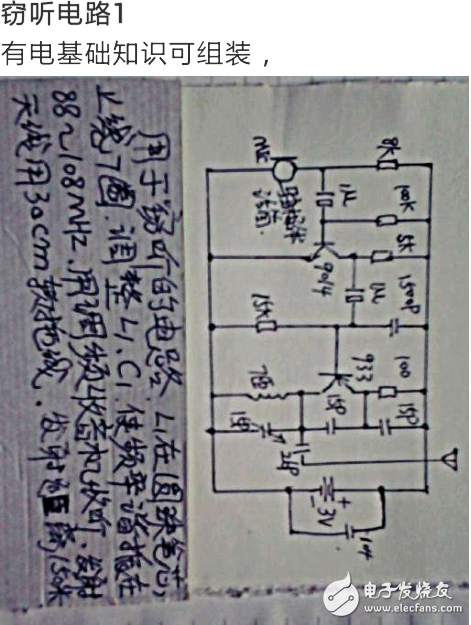 窃听电路1
有电基础知识可组装，
用于窃听的电路. L1在圆珠笔芯,
上绕7圈.调整L1.C1.使频率谐振在
88~108MHz.用调频收音机收听.发射
天线用30cm软拖线.发射距离50米
8K
100K
5K
1500P
100
15P
1u
1u
9014
933
15P
15K
7圈
15P
+
3V
电子发烧友
www.elecfans.com